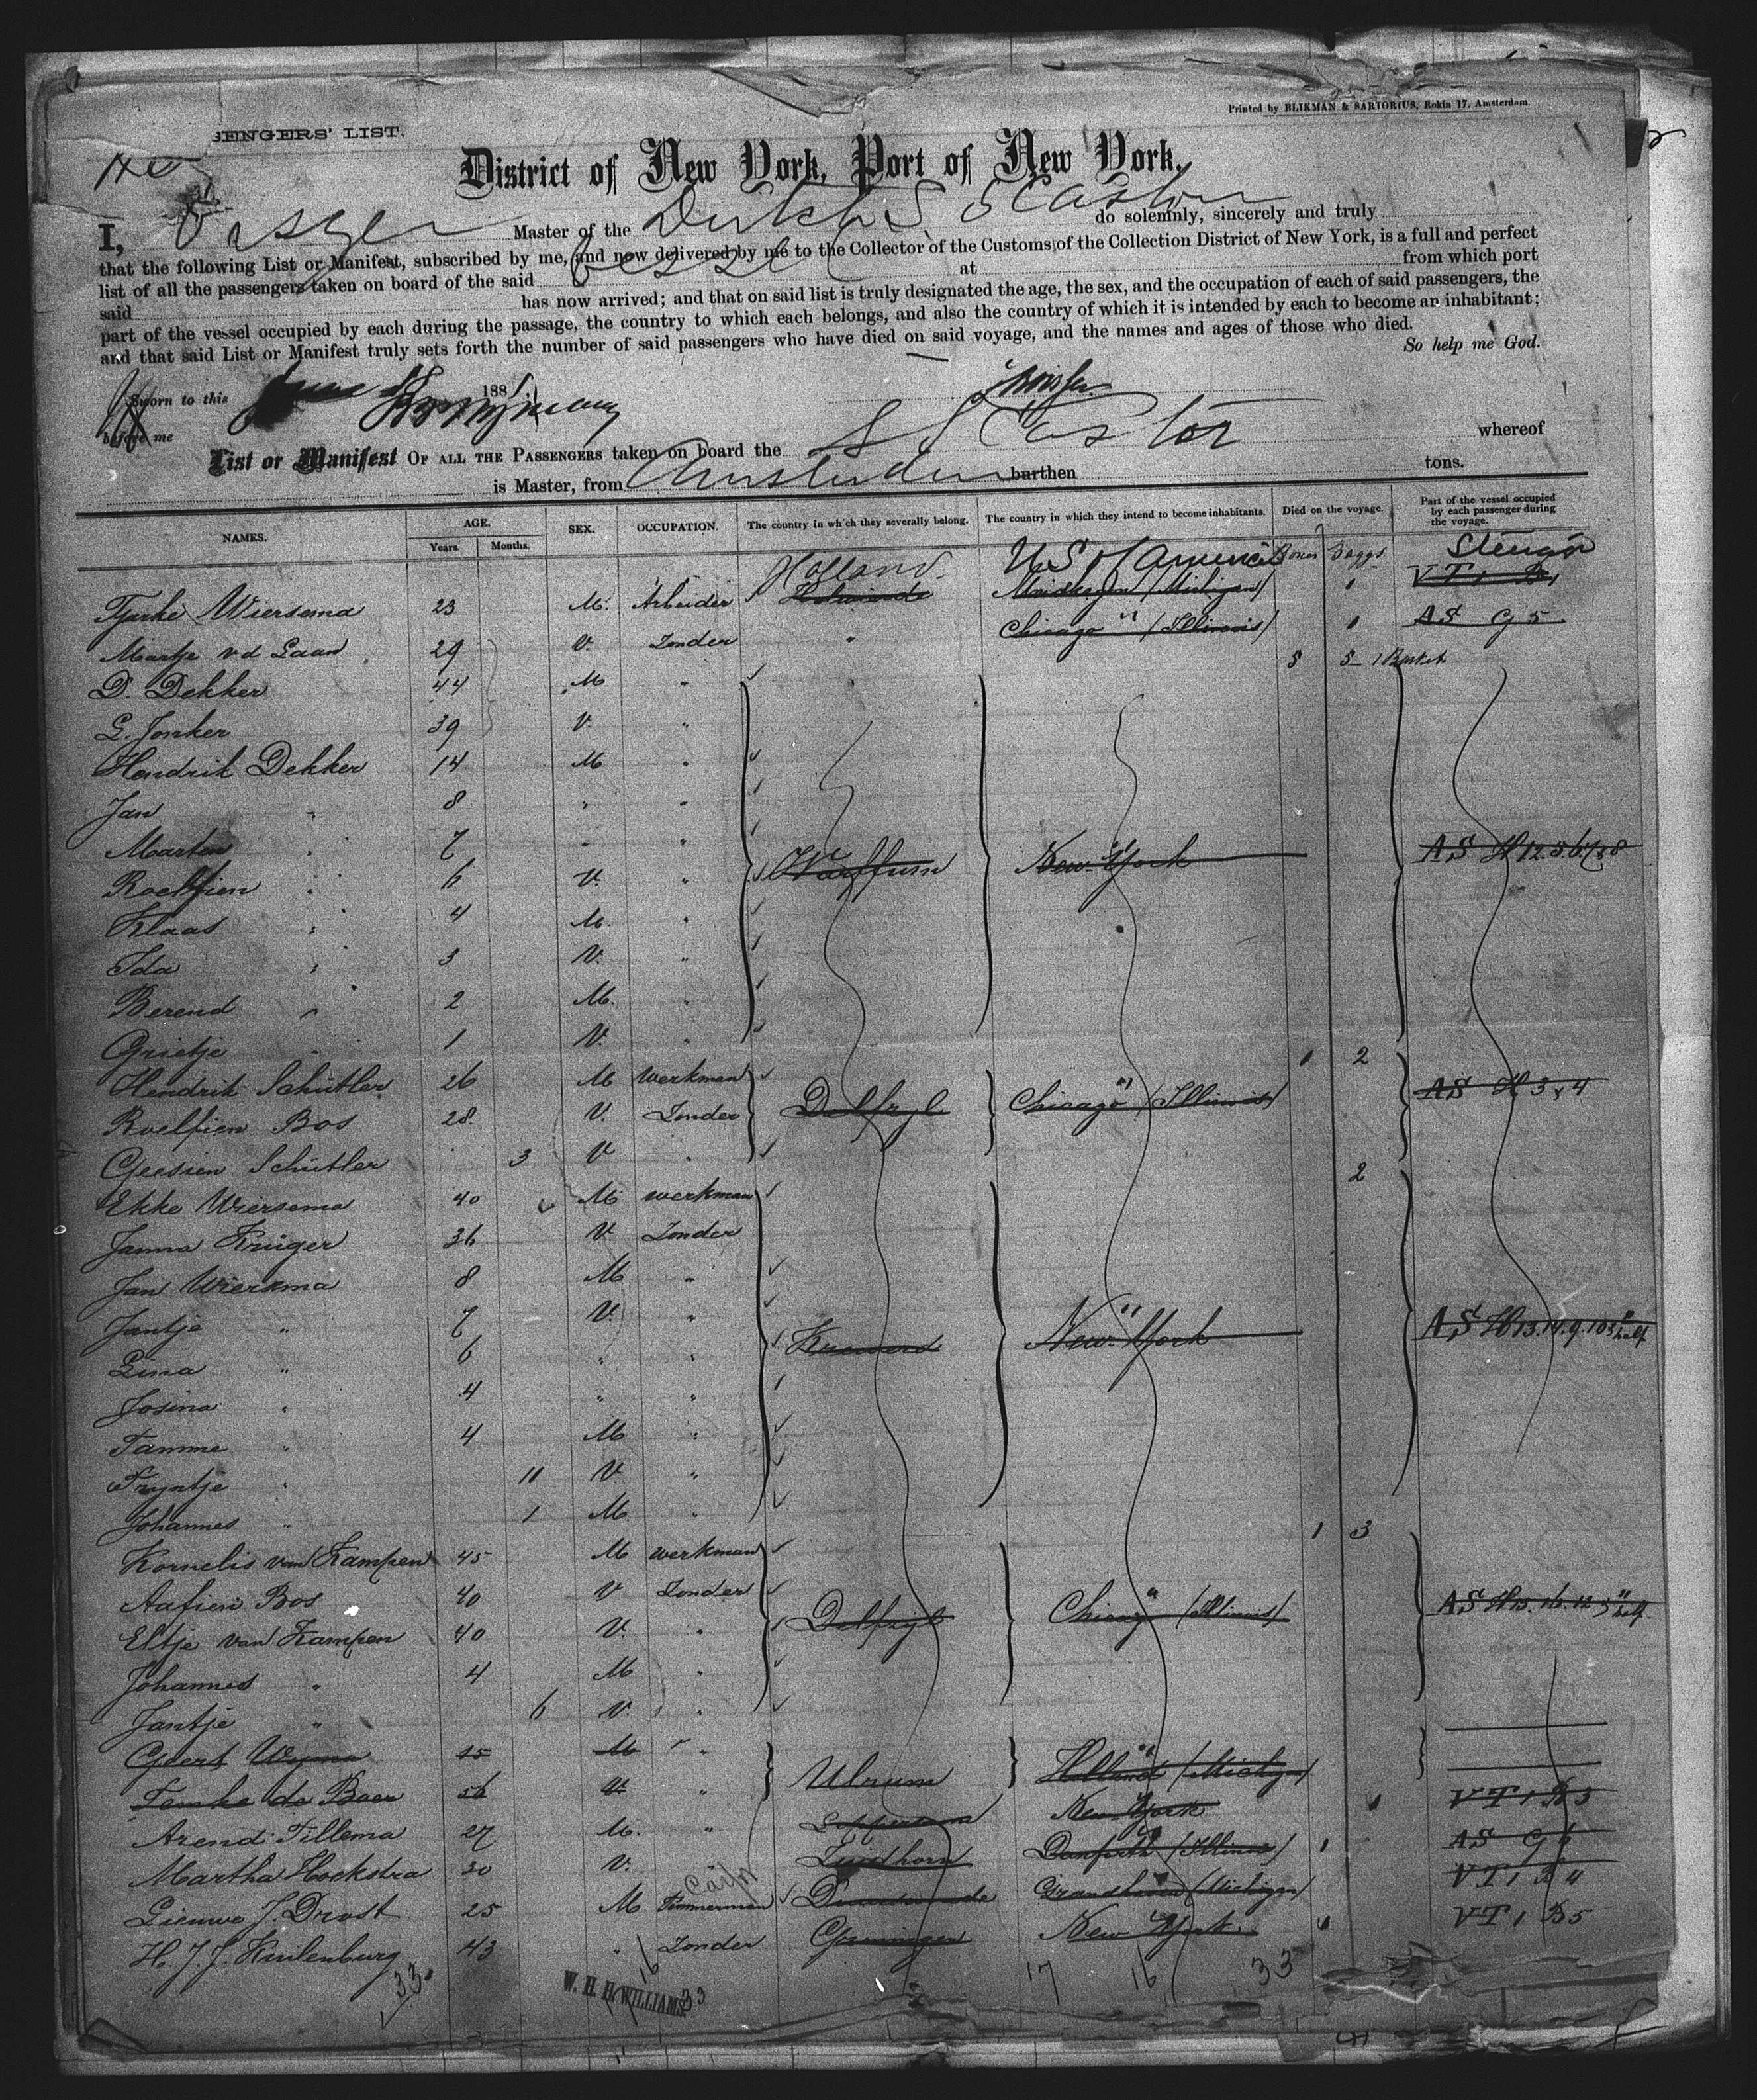 Printed by BLIKMAN & SARTORIUS, Rokin 17, Amsterdam.
SENGERS' LIST.
District of New York, Port of New York.
I, Visser Master of the Dutch S S Castor do solemnly, sincerely and truly
that the following List or Manifest, subscribed by me, and now delivered by me to the Collector of the Customs of the Collection District of New York, is a full and perfect
list of all the passengers taken on board of the said vessel at from which port
said has now arrived; and that on said list is truly designated the age, the sex, and the occupation of each of said passengers, the
part of the vessel occupied by each during the passage, the country to which each belongs, and also the country of which it is intended by each to become an inhabitant;
and that said List or Manifest truly sets forth the number of said passengers who have died on said voyage, and the names and ages of those who died.
So help me God.
Sworn to this June 188
before me
Visser
List or Manifest OF ALL THE PASSENGERS taken on board the S S Castor whereof
is Master, from Amsterdam burthen tons.
NAMES. AGE. Years. Months. SEX. OCCUPATION. The country in which they severally belong. The country in which they intend to become inhabitants. Died on the voyage. Part of the vessel occupied by each passenger during the voyage.
Holland U S of America Boxes Baggs Steerage
Wiersema 23 M. Arbeider Muskegon (Michigan) 1 VT 1 B1
Martje v d Laan 29 V. Zonder " Chicago (Illinois) 1 AS G 5
5 5 1 Basket
D. Dekker 44 M "
G. Jonker 39 V. "
Hendrik Dekker 14 M "
Jan " 8 " "
Marten " 7 " " Warffum New York AS H 1 2 5 6 7 & 8
Roelfien " 6 V. "
Klaas " 4 M. "
Ida " 3 V. "
Berend " 2 M. "
Grietje " 1 V. "
1 2
Hendrik Schutler 26 M Werkman
Roelfien Bos 28 V. Zonder Delfzyl Chicago (Illinois) AS H 3 & 4
Geesien Schutler 3 V "
2
Ekke Wiersema 40 M werkman
Janna Kruger 36 V Zonder
Jan Wiersema 8 M "
Jantje " 7 V. "
Lina " 6 " " New York AS H 13. 14. 9. 10
Josina " 4 " "
Tamme " 4 M "
Tryntje " 11 V. "
Johannes " 1 M. "
1 3
Kornelis van Kampen 45 M werkman
Aafien Bos 40 V Zonder
Eltje van Kampen 40 V. " Delfzyl Chicago (Illinois) AS H 15. 16. 12
Johannes " 4 M "
Jantje " 6 V. "
Geert Wyma M "
Femke de Boer 56 V " Ulrum Holland (Michigan)
Arend Tillema 27 M. " New York 1 VT 1 B 3
Martha Hoekstra 30 V. Zuidhorn Danforth (Illinois) 1 AS G 6
Lieuwe J. Drost 25 M Timmerman Carp Grandhaven (Michigan) VT 1 B 4
H. J. J. Kuilenburg 43 " Zonder Groningen New York VT 1 B5
33 16 17 16 33
W. H. H. WILLIAMS 33